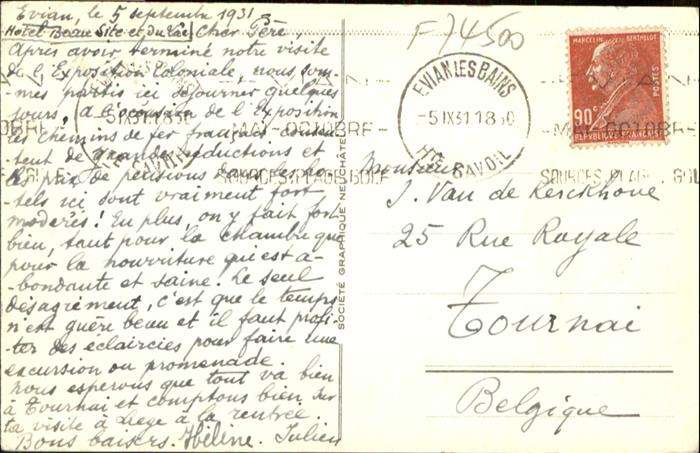 Evian, le 5 septembre 1931
Hôtel Beau Site et du Lac Cher Père,
Après avoir terminé notre visite
de l'Exposition Coloniale, nous som-
mes partis ici séjourner quelques
jours, à l'occasion de l'Exposition
les chemins de fer français consen-
tent de grandes réductions et
les prix de pensions dans les ho-
tels ici sont vraiment fort
modérés! En plus, on y fait fort
bien, tant pour la chambre que
pour la nourriture qui est a-
bondante et saine. Le seul
désagrément, c'est que le temps
n'est guère beau et il faut profi-
ter des éclaircies pour faire une
excursion ou promenade.
Nous espérons que tout va bien
à Tournai et comptons bien sur
ta visite à Liège à la rentrée.
Bons baisers. Hélène. Julien
SOCIÉTÉ GRAPHIQUE NEUCHÂTEL
F 74500
EVIAN LES BAINS
-5 IX 31 18
HTE SAVOIE
MARCELIN BERTHELOT
POSTES
90c
REPUBLIQUE FRANÇAISE
MAI-OCTOBRE
SOURCES. PLAGE. GOLF
Monsieur
J. Van de Kerckhove
25 Rue Royale
Tournai
Belgique